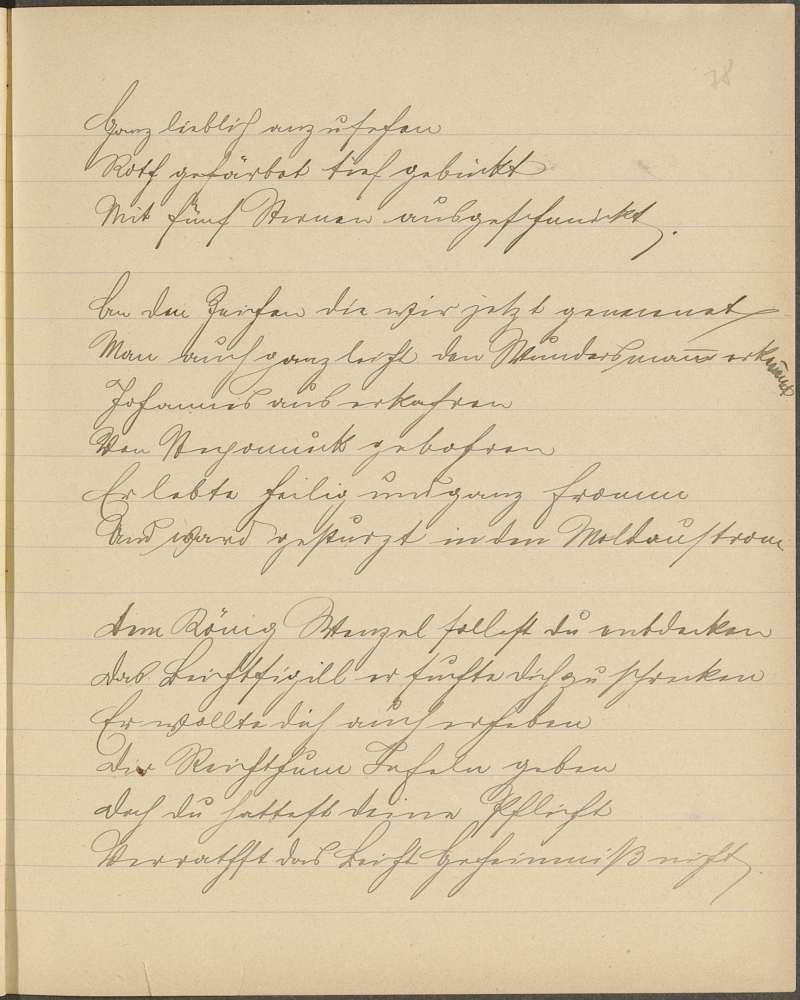 78
Ganz lieblich anzusehen
Roth gefärbet tief gebückt
Mit fünf Sternen ausgeschmückt.
An den Zeichen die wir jetzt genennet
Man auch ganz leicht den Wundersmann erkennet
Johannes auserkohren
Von Nepomuck gebohren
Er lebte heilig und ganz fromm
Und ward gestürzt in den Moldaustrom
Dem König Wenzel sollest du entdecken
Das Beichtsigill er suchte dich zu schrecken
Er wollte dich auch erheben
Dir Reichthum Tafeln geben
Doch du hattest deine Pflicht
Verrathst das Beicht Geheimniß nicht.